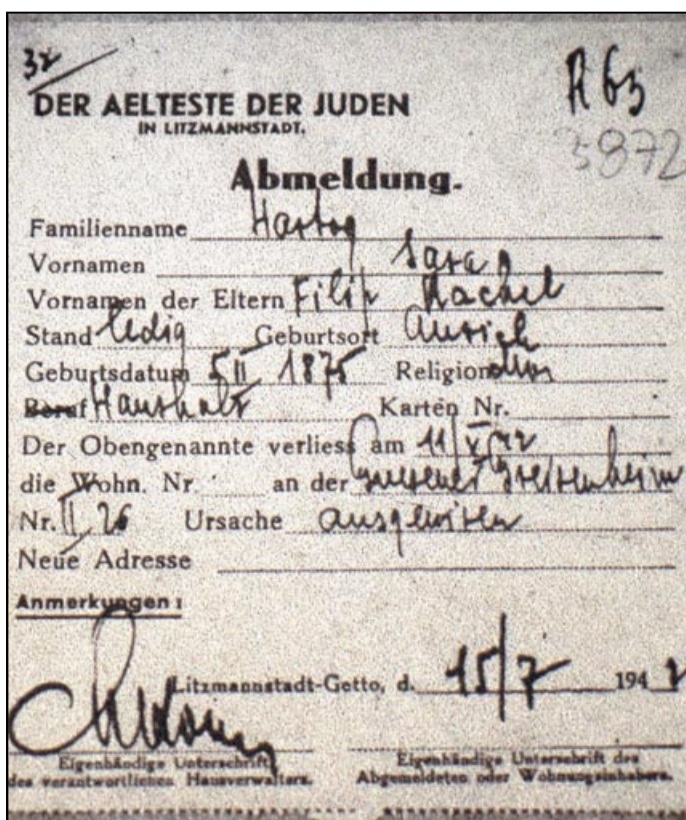 32
R 63
DER AELTESTE DER JUDEN
IN LITZMANNSTADT.
3872
Abmeldung.
Familienname Hartog
Vornamen Sara
Vornamen der Eltern Filip Rachel
Stand ledig Geburtsort Aurich
Geburtsdatum 5 II 1875 Religion
Beruf Haushalt Karten Nr.
Der Obengenannte verliess am 11/V 42
die Wohn. Nr. an der Gnesener Greisenheim
Nr. II, 26 Ursache ausgewisen
Neue Adresse
Anmerkungen:
Litzmannstadt-Getto, d. 15/7 1942
Eigenhändige Unterschrift Eigenhändige Unterschrift des
des verantwortlichen Hausverwalters. Abgemeldeten oder Wohnungsinhabers.